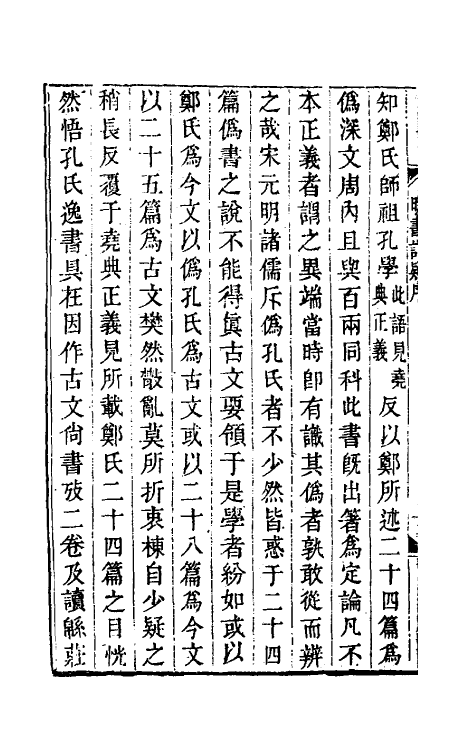 知鄭氏師祖孔學此語見堯典正義反以鄭所述二十四篇為
僞深文周內且與百兩同科此書旣出箸為定論凡不
本正義者謂之異端當時卽有識其僞者孰敢從而辨
之哉宋元明諸儒斥僞孔氏者不少然皆惑于二十四
篇僞書之說不能得眞古文要領于是學者紛如或以
鄭氏為今文以僞孔氏為古文或以二十八篇為今文
以二十五篇為古文樊然殽亂莫所折衷棟自少疑之
稍長反覆于堯典正義見所載鄭氏二十四篇之目恍
然悟孔氏逸書具在因作古文尙書攷二卷及讀緜莊